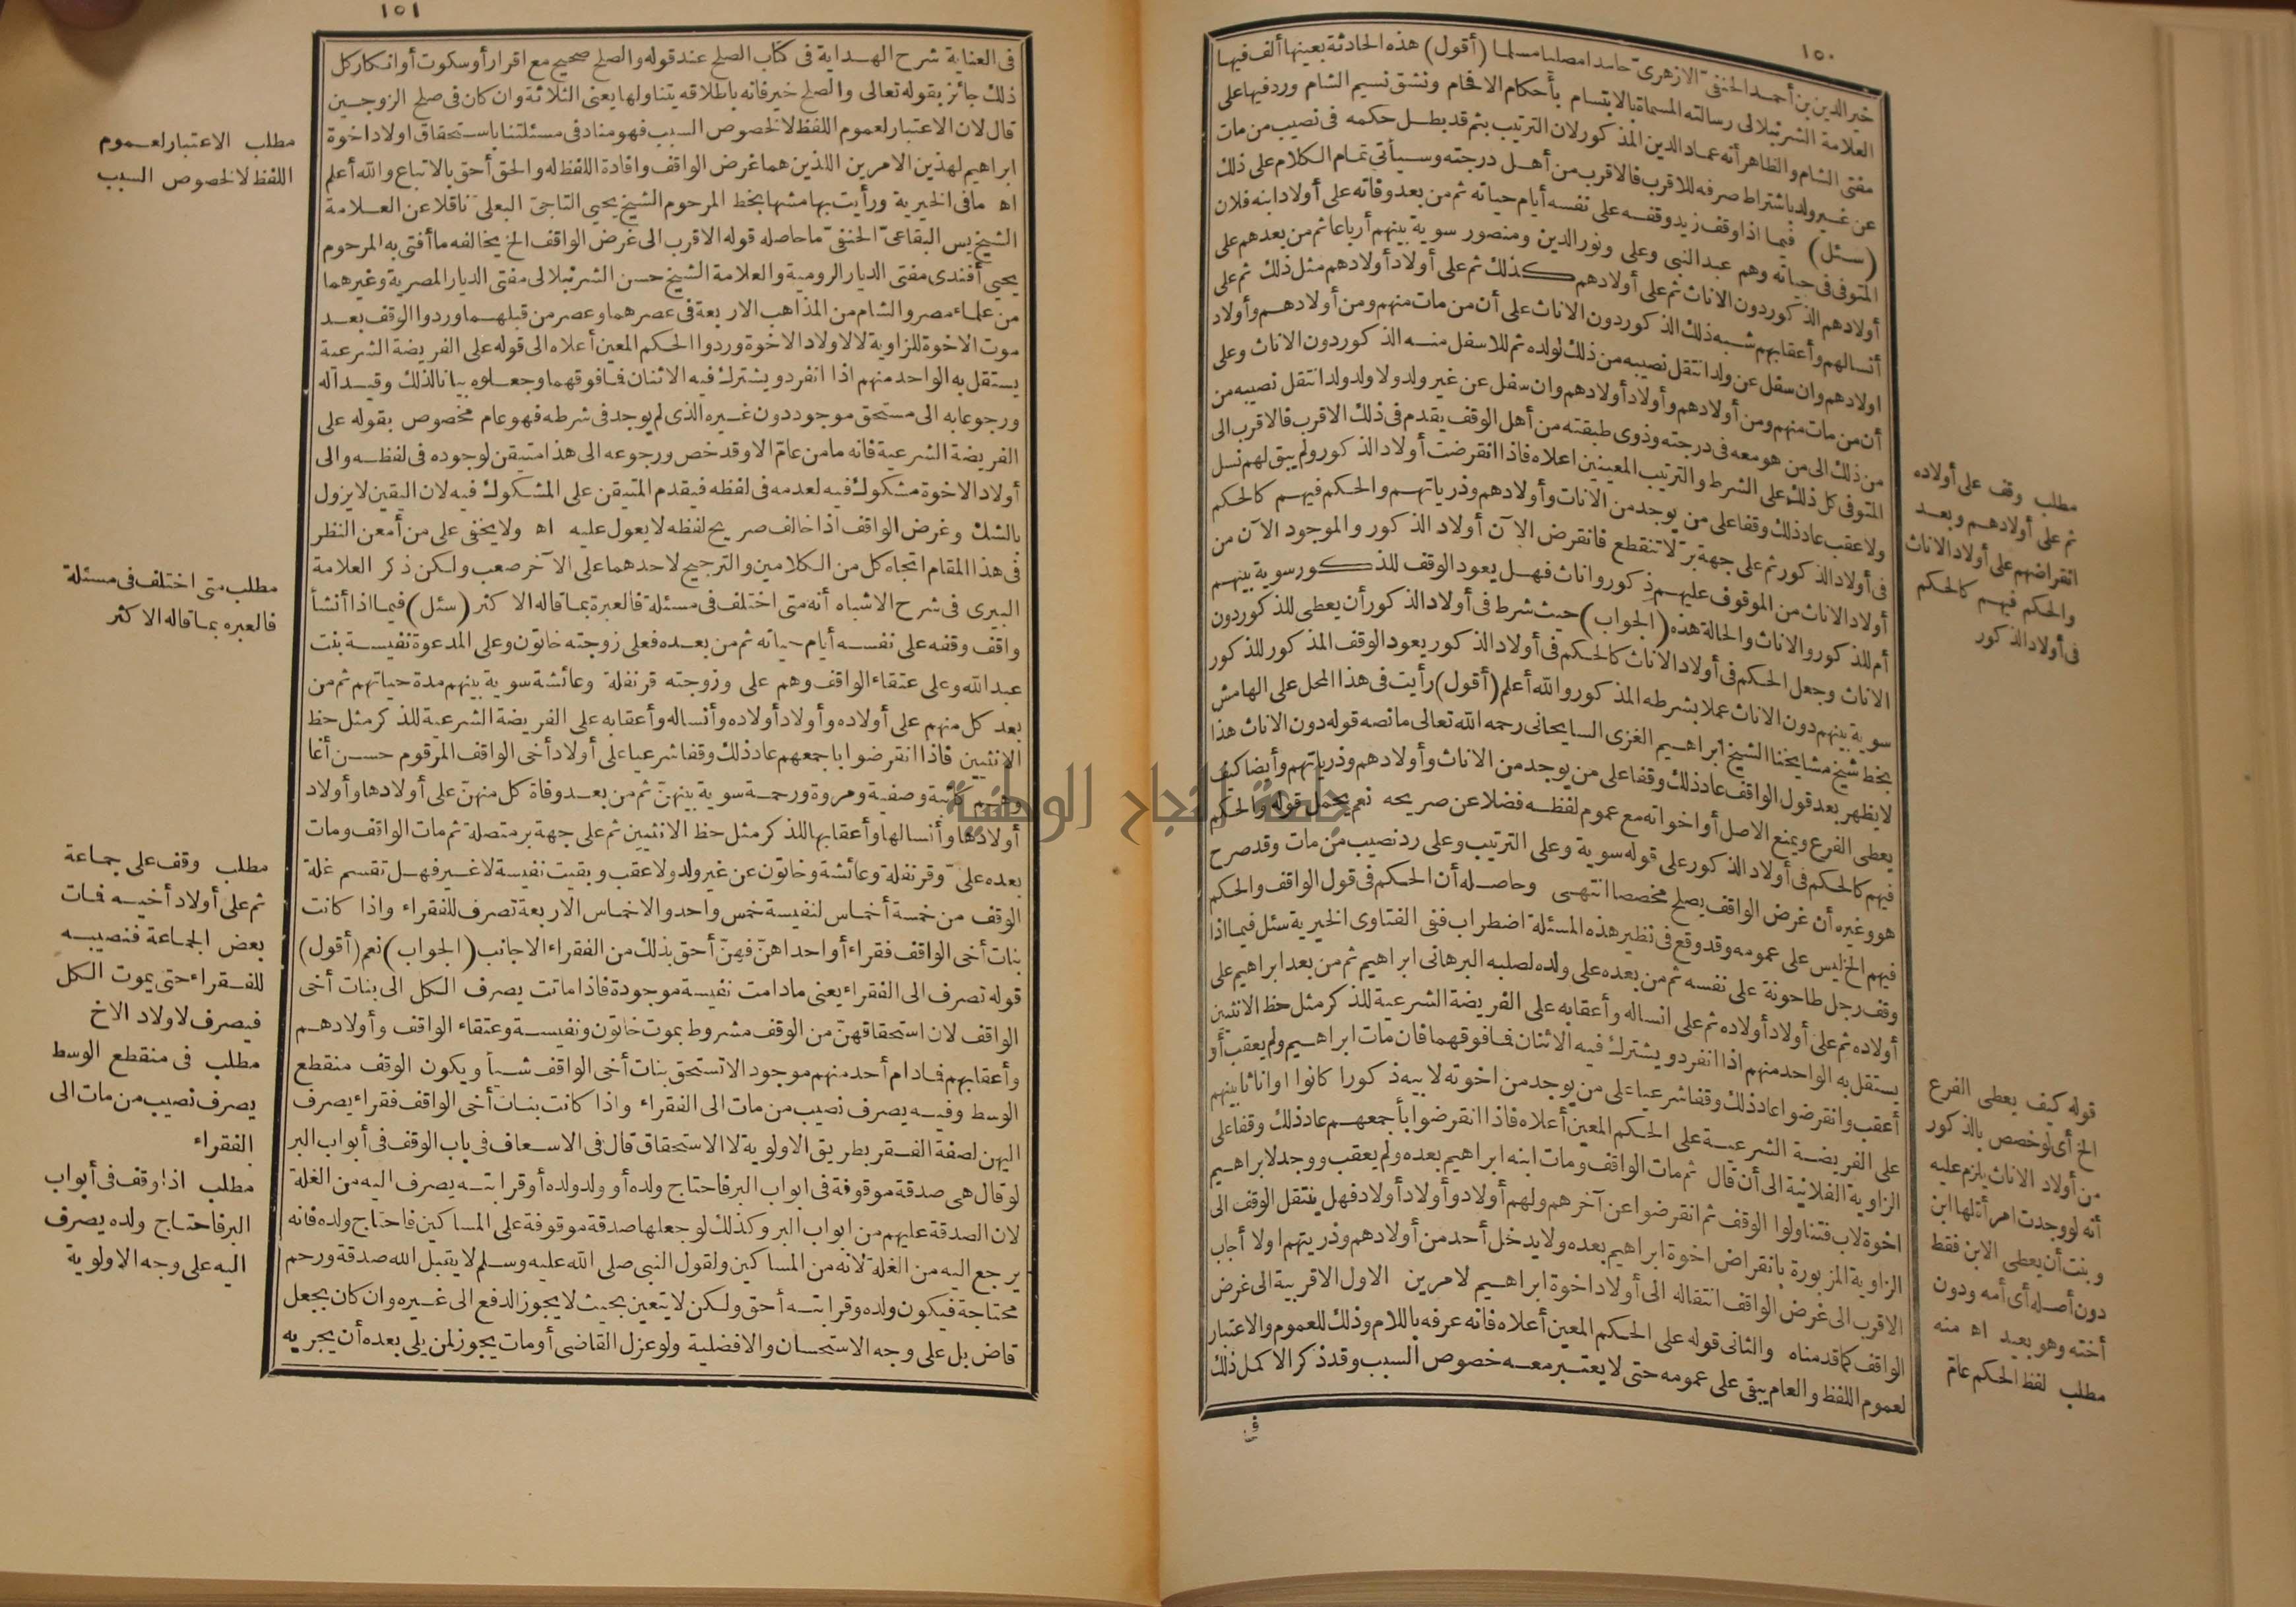 ١٥٠
خير الدين بن أحمد الحنفى الازهرى حامدا مصليا مسلما (أقول) هذه الحادثة بعينها ألف فيها
العلامة الشرنبلالى رسالته المسماة بالابتسام بأحكام الافحام ونشق نسيم الشام وردفيها على
مفتى الشام والظاهر أنه عماد الدين المذكور لان الترتيب بثم قد بطل حكمه فى نصيب من مات
عن غير ولد باشتراط صرفه للاقرب فالاقرب من أهل درجته وسيأتى تمام الكلام على ذلك
(سئل) فيما اذا وقف زيد وقفه على نفسه أيام حياته ثم من بعد وفاته على أولاد ابنه فلان
المتوفى فى حياته وهم عبد النبى وعلى ونور الدين ومنصور سوية بينهم أرباعا ثم من بعدهم على
أولادهم الذكور دون الاناث ثم على أولادهم كذلك ثم على أولاد أولادهم مثل ذلك ثم على
أنسالهم وأعقابهم شبه ذلك الذكور دون الاناث على أن من مات منهم ومن أولادهم وأولاد
اولادهم وان سفل عن ولد انتقل نصيبه من ذلك لولده ثم للاسفل منه الذكور دون الاناث وعلى
أن من مات منهم ومن أولادهم وأولاد أولادهم وان سفل عن غير ولد ولا ولد ولد انتقل نصيبه من
من ذلك الى من هو معه فى درجته وذوى طبقته من أهل الوقف يقدم فى ذلك الاقرب فالاقرب الى
المتوفى كل ذلك على الشرط والترتيب المعينين اعلاه فاذا انقرضت أولاد الذكور ولم يبق لهم نسل
ولا عقب عاد ذلك وقفا على من يوجد من الاناث وأولادهم وذرياتهم والحكم فيهم كالحكم
فى أولاد الذكور ثم على جهة بر لا تنقطع فانقرض الآن أولاد الذكور والموجود الآن من
أولاد الاناث من الموقوف عليهم ذكور واناث فهل يعود الوقف للذكور سوية بينهم
أم للذكور والاناث والحالة هذه (الجواب) حيث شرط فى أولاد الذكور أن يعطى للذكور دون
الاناث وجعل الحكم فى أولاد الاناث كالحكم فى أولاد الذكور يعود الوقف المذكور للذكور
سوية بينهم دون الاناث عملا بشرطه المذكور والله أعلم (أقول) رأيت فى هذا المحل على الهامش
بخط شيخ مشايخنا الشيخ ابراهيم الغزى السايحانى رحمه الله تعالى ما نصه قوله دون الاناث هذا
لا يظهر بعد قول الواقف عاد ذلك وقفا على من يوجد من الاناث وأولادهم وذرياتهم وأيضا كيف
يعطى الفرع ويمنع الاصل أو اخواته مع عموم لفظه فضلا عن صريحه نعم يحمل قوله والحكم
فيهم كالحكم فى أولاد الذكور على قوله سوية وعلى الترتيب وعلى رد نصيب من مات وقد صرح
هو وغيره أن غرض الواقف يصلح مخصصا انتهى وحاصله أن الحكم فى قول الواقف والحكم
فيهم الخ ليس على عمومه وقد وقع فى نظير هذه المسئلة اضطراب ففى الفتاوى الخيرية سئل فيما اذا
وقف رجل طاحونة على نفسه ثم من بعده على ولده لصلبه البرهانى ابراهيم ثم من بعد ابراهيم على
أولاده ثم على أولاد أولاده ثم على انساله وأعقابه على الفريضة الشرعية للذكر مثل حظ الانثيين
يستقل به الواحد منهم اذا انفرد ويشترك فيه الاثنان فما فوقهما فان مات ابراهيم ولم يعقب أو
أعقب وانقرضوا عاد ذلك وقفا شرعيا على من يوجد من اخوته لابيه ذكورا كانوا او اناثا بينهم
على الفريضة الشرعية على الحكم المعين أعلاه فاذا انقرضوا بأجمعهم عاد ذلك وقفا على
الزاوية الفلانية الى أن قال ثم مات الواقف ومات ابنه ابراهيم بعده ولم يعقب ووجد لابراهيم
اخوة لاب فتناولوا الوقف ثم انقرضوا عن آخرهم ولهم أولاد وأولاد أولاد فهل ينتقل الوقف الى
الزاوية المزبورة بانقراض اخوة ابراهيم بعده ولا يدخل أحد من أولادهم وذريتهم اولا أجاب
الاقرب الى غرض الواقف انتقاله الى أولاد اخوة ابراهيم لامرين الاول الاقربية الى غرض
الواقف كما قدمناه والثانى قوله على الحكم المعين أعلاه فانه عرفه باللام وذلك للعموم والاعتبار
لعموم اللفظ والعام يبقى على عمومه حتى لا يعتبر معه خصوص السبب وقد ذكر الاكمل ذلك
فى
مطلب وقف على أولاده
ثم على أولادهم وبعد
انقراضهم على أولاد الاناث
والحكم فيهم كالحكم
فى أولاد الذكور
قوله كيف يعطى الفرع
الخ أى لو خصص بالذكور
من أولاد الاناث يلزم عليه
أنه لو وجدت امرأة لها ابن
وبنت أن يعطى الابن فقط
دون أصله أى أمه ودون
أخته وهو بعيد اه منه
مطلب لفظ الحكم عام
١٥١
فى العناية شرح الهداية فى كتاب الصلح عند قوله والصلح صحيح مع اقرار أو سكوت أو انكار كل
ذلك جائز بقوله تعالى والصلح خير فانه باطلاقه يتناولها يعنى الثلاثة وان كان فى صلح الزوجين
قال لان الاعتبار لعموم اللفظ لا لخصوص السبب فهو مناد فى مسئلتنا باستحقاق اولاد اخوة
ابراهيم لهذين الامرين اللذين هما غرض الواقف وافادة اللفظ له والحق أحق بالاتباع والله أعلم
اه ما فى الخيرية ورأيت بهامشها بخط المرحوم الشيخ يحيى التاجى البعلى ناقلا عن العلامة
الشيخ يس البقاعى الحنفى ما حاصله قوله الاقرب الى غرض الواقف الخ يخالفه ما أفتى به المرحوم
يحيى أفندى مفتى الديار الرومية والعلامة الشيخ حسن الشرنبلالى مفتى الديار المصرية وغيرهما
من علماء مصر والشام من المذاهب الاربعة فى عصرهما وعصر من قبلهما وردوا الوقف بعد
موت الاخوة للزاوية لا لاولاد الاخوة وردوا الحكم المعين أعلاه الى قوله على الفريضة الشرعية
يستقل به الواحد منهم اذا انفرد ويشترك فيه الاثنان فما فوقهما وجعلوه بيانا لذلك وقيدا له
ورجوعا به الى مستحق موجود دون غيره الذى لم يوجد فى شرطه فهو عام مخصوص بقوله على
الفريضة الشرعية فانه ما من عام الا وقد خص ورجوعه الى هذا متيقن لوجوده فى لفظه والى
أولاد الاخوة مشكوك فيه لعدمه فى لفظه فيقدم المتيقن على المشكوك فيه لان اليقين لا يزول
بالشك وغرض الواقف اذا خالف صريح لفظه لا يعول عليه اه ولا يخفى على من أمعن النظر
فى هذا المقام اتجاه كل من الكلامين والترجيح لاحدهما على الآخر صعب ولكن ذكر العلامة
البيرى فى شرح الاشباه أنه متى اختلف فى مسئلة فالعبرة بما قاله الاكثر (سئل) فيما اذا أنشأ
واقف وقفه على نفسه أيام حياته ثم من بعده فعلى زوجته خاتون وعلى المدعوة نفيسة بنت
عبد الله وعلى عتقاء الواقف وهم على وزوجته قرنفلة وعائشة سوية بينهم مدة حياتهم ثم من
بعد كل منهم على أولاده وأولاد أولاده وأنساله وأعقابه على الفريضة الشرعية للذكر مثل حظ
الانثيين فاذا انقرضوا باجمعهم عاد ذلك وقفا شرعيا على أولاد أخى الواقف المرقوم حسن أغا
وهم كاتبة وصفية ومروة ورحمة سوية بينهن ثم من بعد وفاة كل منهن على أولادها وأولاد
أولادها وأنسالها وأعقابها للذكر مثل حظ الانثيين ثم على جهة بر متصلة ثم مات الواقف ومات
بعده على وقرنفلة وعائشة وخاتون عن غير ولد ولا عقب وبقيت نفيسة لا غير فهل تقسم غلة
الوقف من خمسة أخماس لنفيسة خمس واحد والاخماس الاربعة تصرف للفقراء واذا كانت
بنات أخى الواقف فقراء أو احداهن فهن أحق بذلك من الفقراء الاجانب (الجواب) نعم (أقول)
قوله تصرف الى الفقراء يعنى مادامت نفيسة موجودة فاذا ماتت يصرف الكل الى بنات أخى
الواقف لان استحقاقهن من الوقف مشروط بموت خاتون ونفيسة وعتقاء الواقف وأولادهم
وأعقابهم فمادام أحد منهم موجود الاتستحق بنات أخى الواقف شيأ ويكون الوقف منقطع
الوسط وفيه يصرف نصيب من مات الى الفقراء واذا كانت بنات أخى الواقف فقراء يصرف
اليهن لصفة الفقر بطريق الاولوية لا الاستحقاق قال فى الاسعاف فى باب الوقف فى أبواب البر
لو قال هى صدقة موقوفة فى ابواب البر فاحتاج ولده أو ولد ولده أو قرابته يصرف اليه من الغلة
لان الصدقة عليهم من ابواب البر وكذلك لو جعلها صدقة موقوفة على المساكين فاحتاج ولده فانه
يرجع اليه من الغلة لانه من المساكين ولقول النبى صلى الله عليه وسلم لا يقبل الله صدقة ورحم
محتاجة فيكون ولده وقرابته أحق ولكن لا يتعين بحيث لا يجوز الدفع الى غيره وان كان بجعل
قاض بل على وجه الاستحسان والافضلية ولو عزل القاضى أو مات يجوز لمن يلى بعده أن يجريه
مطلب الاعتبار لعموم
اللفظ لا لخصوص السبب
مطلب متى اختلف فى مسئلة
فالعبره بما قاله الاكثر
مطلب وقف على جماعة
ثم على أولاد أخيه فمات
بعض الجماعة فنصيبه
للفقراء حتى يموت الكل
فيصرف لاولاد الاخ
مطلب فى منقطع الوسط
يصرف نصيب من مات الى
الفقراء
مطلب اذا وقف فى أبواب
البر فاحتاج ولده يصرف
اليه على وجه الاولوية
جامعة النجاح الوطنية